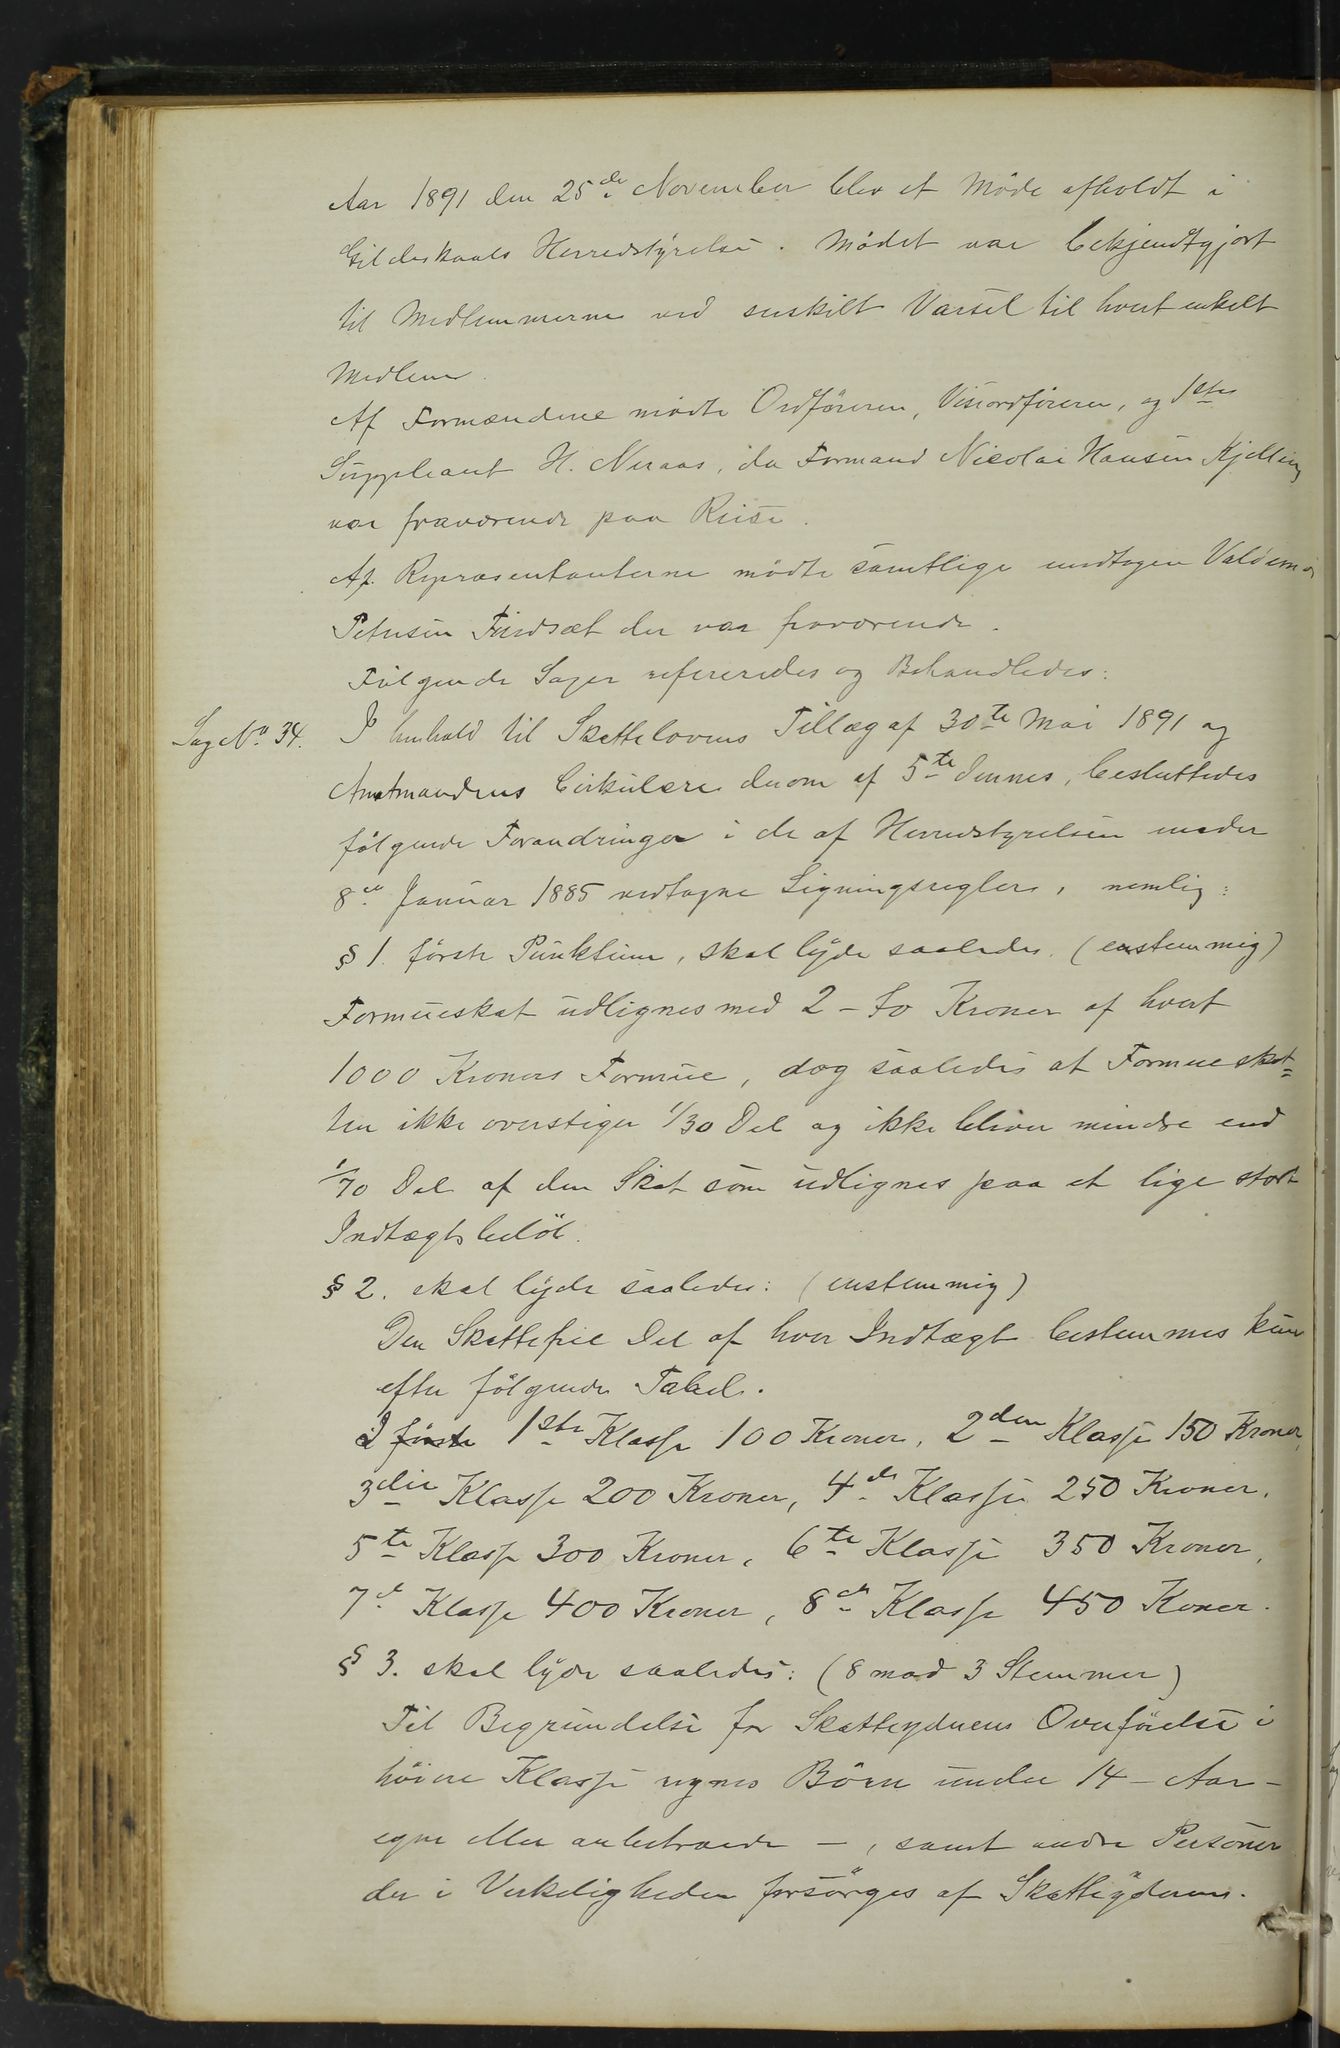 Aar 1891 den 25de November blev et Møde afholdt i
Gildeskaals Herredstyrelse. Mødet var bekjendtgjort
til Medlemmerne ved særskilt Varsel til hvert enkelt
Medlem.
Af Formændene mødte Ordføreren, Viseordføreren, og 1ste
Suppleant H. Neraas, da Formand Nicolai Hansen Kjelling
var fraværende paa Reise.
Af Repræsentanterne mødte samtlige undtagen Valdemar
Petersen Findsæt der var fraværende.
Følgende Sager refereredes og Behandledes:
Sag No 34. I henhold til Skattelovens Tillæg af 30te Mai 1891 og
Amtmandens Cirkulære derom af 5te dennes, besluttedes
følgende Forandringer i de af Herredstyrelsen under
8de Januar 1885 vedtagne Ligningsregler, nemlig:
§ 1. første Punktum, skal lyde saaledes. (enstemmig)
Formueskat udlignes med 2 - to Kroner af hvert
1000 Kroners Formue, dog saaledes at Formueskat=
ten ikke overstiger 1/30 Del og ikke bliver mindre end
1/70 Del af den Skat som udlignes paa et lige stort
Indtægtsbeløb.
§ 2. skal lyde saaledes: (enstemmig)
Den Skattefrie Del af hver Indtægt bestemmes kun
efter følgende Tabel.
I første 1ste Klasse 100 Kroner, 2den Klasse 150 Kroner,
3die Klasse 200 Kroner, 4de Klasse 250 Kroner,
5te Klasse 300 Kroner, 6te Klasse 350 Kroner,
7de Klasse 400 Kroner, 8de Klasse 450 Koner.
§ 3. skal lyde saaledes: (8 mod 3 Stemmer)
Til Begrundelse for Skatteyderens Overførelse i
høiere Klasse regnes Børn under 14 - Aar -
egne eller anbetroede -, samt andre Personer
der i Virkeligheden forsørges af Skatteyderen.